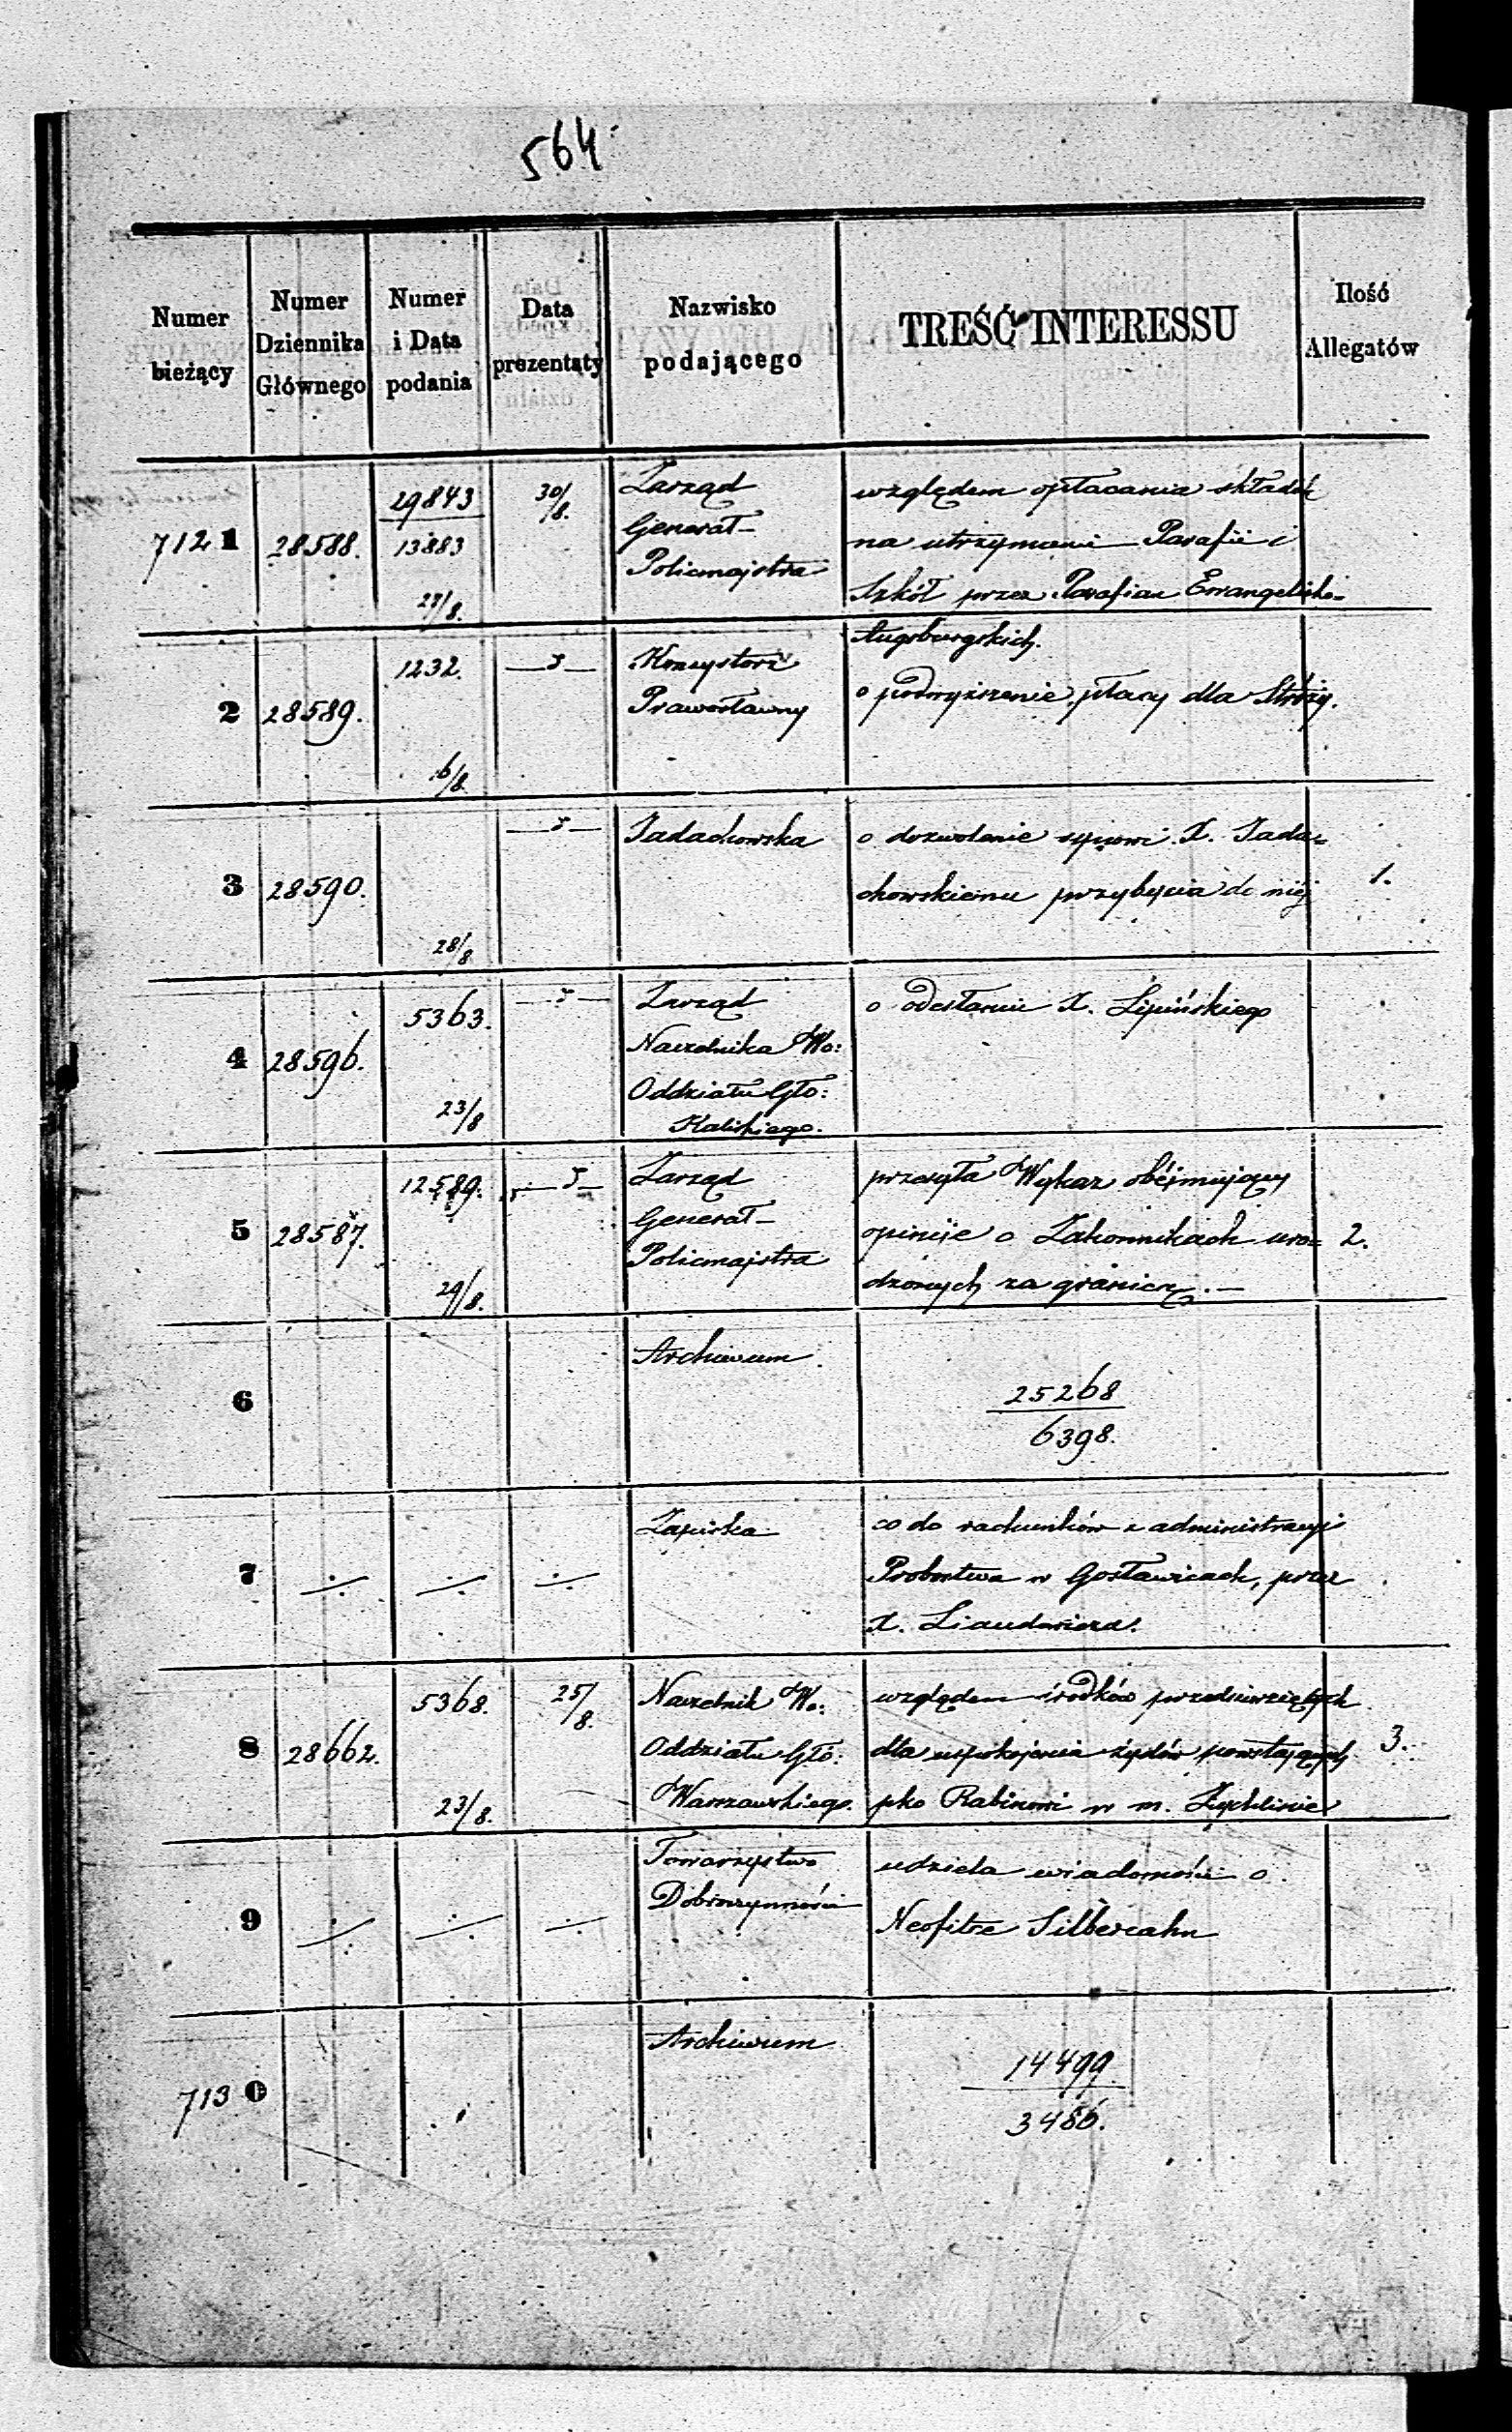 564
Numer bieżący
Numer Dziennika Głównego
Numer i Data podania
Data prezentaty
Nazwisko podającego
TREŚĆ INTERESSU
Ilość Allegatów
7121
28588.
29843
13883
27/8.
30/8.
Zarząd
Generał-
Policmajstra
względem opłacania składek
na utrzymanie Parafii i
Szkół przez Parafian Ewangelicko-
Augsburgskich.
2
28589.
1232.
6/8
Konsystorz
Prawosławny
o podwyższenie płacy dla Stróży.
3
28590.
28/8
Jadachowska
o dozwolenie synowi X. Jada=
chowskiemu przybycia do niéj
1.
4
28596.
5363.
23/8
Zarząd
Naczelnika Wo:
Oddziału Gło:
Kaliskiego.
o odesłanie X. Lipińskiego
5
28587.
12589.
29/8.
Zarząd
Generał-
Policmajstra
przesyła Wykaz obejmujący
opiniie o Zakonnikach uro=
dzonych za granicą. —
2.
6
Archiwum
25268
6398.
7
Zapiska
co do rachunków z administracyi
Probostwa w Gosławicach, przez
X. Liaudowicza.
8
28662.
5368.
23/8.
25/8.
Naczelnik Wo:
Oddziału Gło:
Warszawskiego.
względem środków przedsięwziętych
dla uspokojenia żydów powstających
pko Rabinowi w m. Żychlinie
3.
9
Towarzystwo
Dobroczynności
udziela wiadomości o
Neofitce Silbercahn
7130
Archiwum
14499
3486.